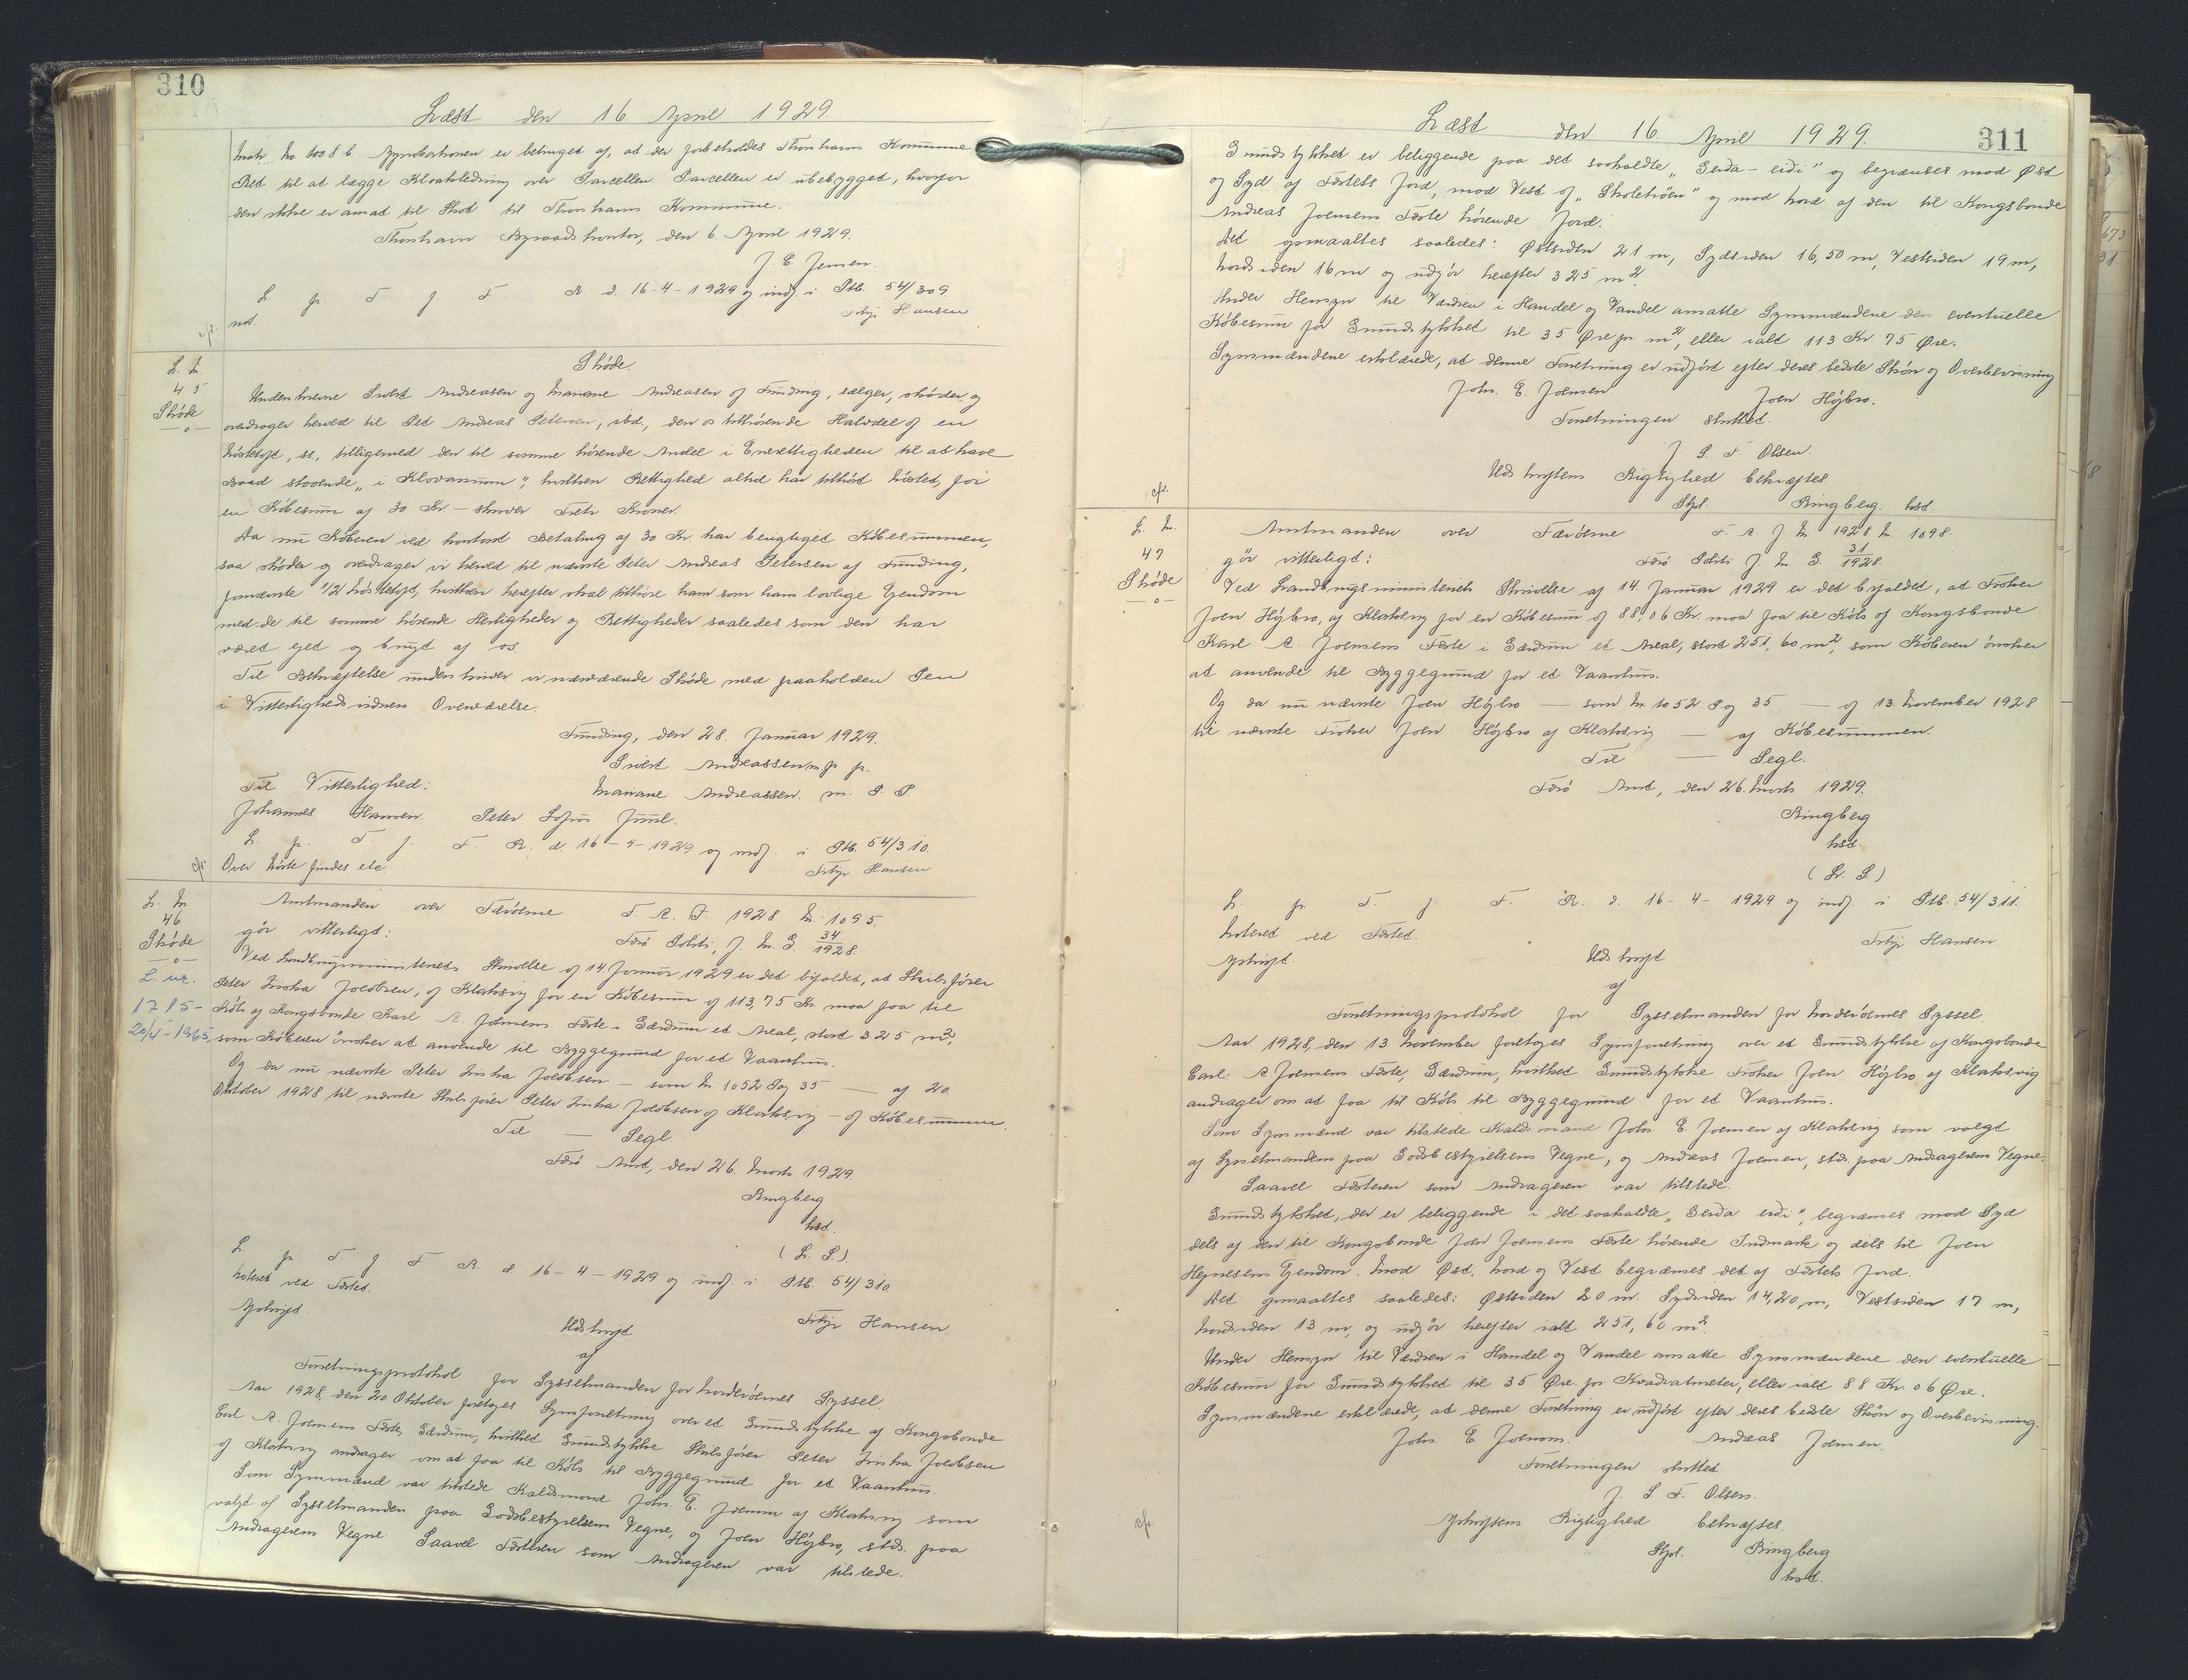 310
Læst den 16 April 1929.
Matr. No 1008 b. Approbationen er betinget af, at der forbeholdes Thorshavns Kommune
Ret til at lægge Kloakledning over Parcellen. Parcellen er ubebygget, hvorfor
den ikke er ansat til Skat til Thorshavns Kommune.
Thorshavn Byraadskontor, den 6. April 1929.
J. E. Jensen.
L. p. T. f. F. R. d. 16-4-1929 og indf. i Ptb. 54/309.
not. Hansen
L. N.
45
Skøde
Skøde.
Undertegnede Sivert Andreasen og Mariane Andreasen af Funding, sælger, skøder og
overdrager herved til Peter Andreas Petersen, ibd., den os tilhørende Halvdel af en
, ss., tilligemed den til samme hørende Andel i Enerettigheden til at have
Baad staaende „i Klovanum", hvilken Rettighed altid har tilhørt , for
en Købesum af 30 Kr – skriver Treti Kroner.
Da nu Køberen ved kontant Betaling af 30 Kr. har berigtiget Købesummen,
saa skøder og overdrager vi herved til nævnte Peter Andreas Petersen af Funding,
fornævnte 1/2 , hvilken herefter skal tilhøre ham som hans lovlige Ejendom
med de til samme hørende Herligheder og Rettigheder saaledes som den har
været ejet og brugt af os.
Til Bekræftelse underskriver vi nærværende Skøde med paaholden Pen
i Vitterlighedsvidners Overværelse.
Funding, den 28. Januar 1929.
Sivert Andreassen m. p. p.
Til Vitterlighed: Mariane Andreassen. m. P. P.
Johannes Hansen. Peter Sofus Juul.
L. p. T. f. F. R. d. 16-4-1929 og indf. i Ptb. 54/310.
Over findes etc. Hansen
L. N.
46
Skøde
L. nr.
1785-
20/4-1965
Amtmanden over Færøerne F. A. J. 1928 N. 1095.
gør vitterligt: Færø Politi, J. N. G 34/1928.
Ved Landbrugsministeriets Skrivelse af 14. Januar 1929 er det bifaldet, at Skibsfører
Peter Jacobsen, af Klaksvig for en Købesum af 113,75 Kr. maa faa til
Købs af Kongsbonde Karl A. Joensens Fæste i Gærdum et Areal, stort 325 m²,
som Køberen ønsker at anvende til Byggegrund for et Vaanhus.
Og da nu nævnte Peter Jacobsen – som N. 1052 Pag 35 — af 20.
Oktober 1928 til nævnte Skibsfører Peter Jacobsen af Klaksvig – af Købesummen.
Til — Segl.
Færø Amt, den 26. Marts 1929.
Ringberg
kst.
(L. S.)
L. p. T. f. F. R. d. 16-4-1929 og indf. i Ptb. 54/310.
Noteret ved Fæstet.
Afskrift. Hansen.
Udskrift
af
Forretningsprotokol for Sysselmanden for Norderøernes Syssel.
Aar 1928, den 20. Oktober foretoges Synsforretning over et Grundstykke af Kongsbonde
Carl A. Joensens Fæste, Gærdum, hvilket Grundstykke Skibsfører Peter Jacobsen
af Klaksvig andrager om at faa til Købs til Byggegrund for et Vaanhus.
Som Synsmænd var tilstede Kaldsmand Johs. E. Joensen af Klaksvig som
valgt af Sysselmanden paa Godsbestyrelsens Vegne, og Joen Højbro, stds. paa
Andragerens Vegne. Saavel Fæsteren som Andrageren var tilstede.
311
Læst den 16 April 1929.
Grundstykket er beliggende paa det saakaldte „Gerda-eidi" og begrænses mod Øst
og Syd af Fæstets Jord, mod Vest af „Skoletrøen" og mod Nord af den til Kongsbonde
Andreas Joensens Fæste hørende Jord.
Det opmaaltes saaledes: Østsiden 21 m, Sydsiden 16,50 m, Vestsiden 19 m,
Nordsiden 16 m og udgør herefter 325 m².
Under Hensyn til Værdien i Handel og Vandel ansatte Synsmændene den eventuelle
Købesum for Grundstykket til 35 Øre pr. m², eller ialt 113 Kr. 75 Øre.
Synsmændene erklærede, at denne Forretning er udført efter deres bedste Skøn og Overbevisning
Johs. E. Joensen. Joen Højbro.
Forretningen sluttet.
J. S. F. Olsen.
Udskriftens Rigtighed bekræftes.
Ringberg. kst
L. N.
47
Skøde
Amtmanden over Færøerne F. A. J. N. 1928 N. 1098.
gør vitterligt: Færø Politi J. N. G. 31/1928.
Ved Landbrugsministeriets Skrivelse af 14. Januar 1929 er det bifaldet, at Frøken
Joen Højbro, af Klaksvig for en Købesum af 88,06 Kr. maa faa til Købs af Kongsbonde
Karl A. Joensens Fæste i Gærdum et Areal, stort 251,60 m², som Køberen ønsker
at anvende til Byggegrund for et Vaanhus.
Og da nu nævnte Joen Højbro — som N. 1052 Pag 35 — af 13. November 1928
til nævnte Frøken Joen Højbro af Klaksvig — af Købesummen.
Til — Segl.
Færø Amt, den 26. Marts 1929.
Ringberg
kst.
(L. S.)
L. p. T. f. F. R. d. 16-4-1929 og indf. i Ptb. 54/311.
Noteret ved Fæstet. Hansen.
Afskrift. Udskrift
af
Forretningsprotokol for Sysselmanden for Norderøernes Syssel.
Aar 1928, den 13. November foretoges Synsforretning over et Grundstykke af Kongsbonde
Carl A. Joensens Fæste, Gærdum, hvilket Grundstykke Frøken Joen Højbro af Klaksvig
andrager om at faa til Købs til Byggegrund for et Vaanhus.
Som Synsmænd var tilstede Kaldsmand Johs. E. Joensen af Klaksvig som valgt
af Sysselmanden paa Godsbestyrelsens Vegne, og Andreas Joensen, stds. paa Andragerens Vegne.
Saavel Fæsteren som Andrageren var tilstede.
Grundstykket, der er beliggende i det saakaldte „Gerda eidi", begrænses mod Syd
dels af den til Kongsbonde Joen Joensens Fæste hørende Indmark og dels til Joen
Hejnesens Ejendom. Mod Øst, Nord og Vest begrænses det af Fæstets Jord.
Det opmaaltes saaledes: Østsiden 20 m. Sydsiden 14,20 m, Vestsiden 17 m,
Nordsiden 13 m, og udgør herefter ialt 251,60 m².
Under Hensyn til Værdien i Handel og Vandel ansatte Synsmændene den eventuelle
Købesum for Grundstykket til 35 Øre pr. Kvadratmeter, eller ialt 88 Kr. 06 Øre.
Synsmændene erklærede, at denne Forretning er udført efter deres bedste Skøn og Overbevisning.
Johs. E. Joensen. Andreas Joensen.
Forretningen sluttet.
J. S. F. Olsen.
Afskriftens Rigtighed bekræftes.
Ringberg
kst.